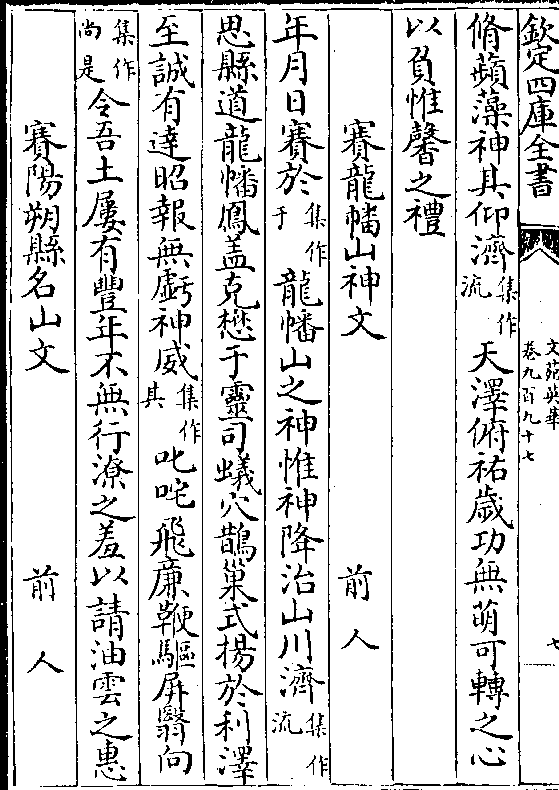 欽定四庫全書
文苑英華
卷九百九十七
七
脩蘋藻神其仰濟集作流天澤俯祐歳功無萌可轉之心
以負惟馨之禮
賽龍幡山神文 前人
年月日賽於集作于龍幡山之神惟神降治山川濟集作流
思縣道龍幡鳳盖克懋于靈司蟻穴鵲巢式揚於利澤
至誠有達昭報無虧神威集作其叱咤飛廉鞭驅屏翳向
集作尚是令吾土屢有豐年不無行潦之羞以請油雲之惠
賽陽朔縣名山文 前人